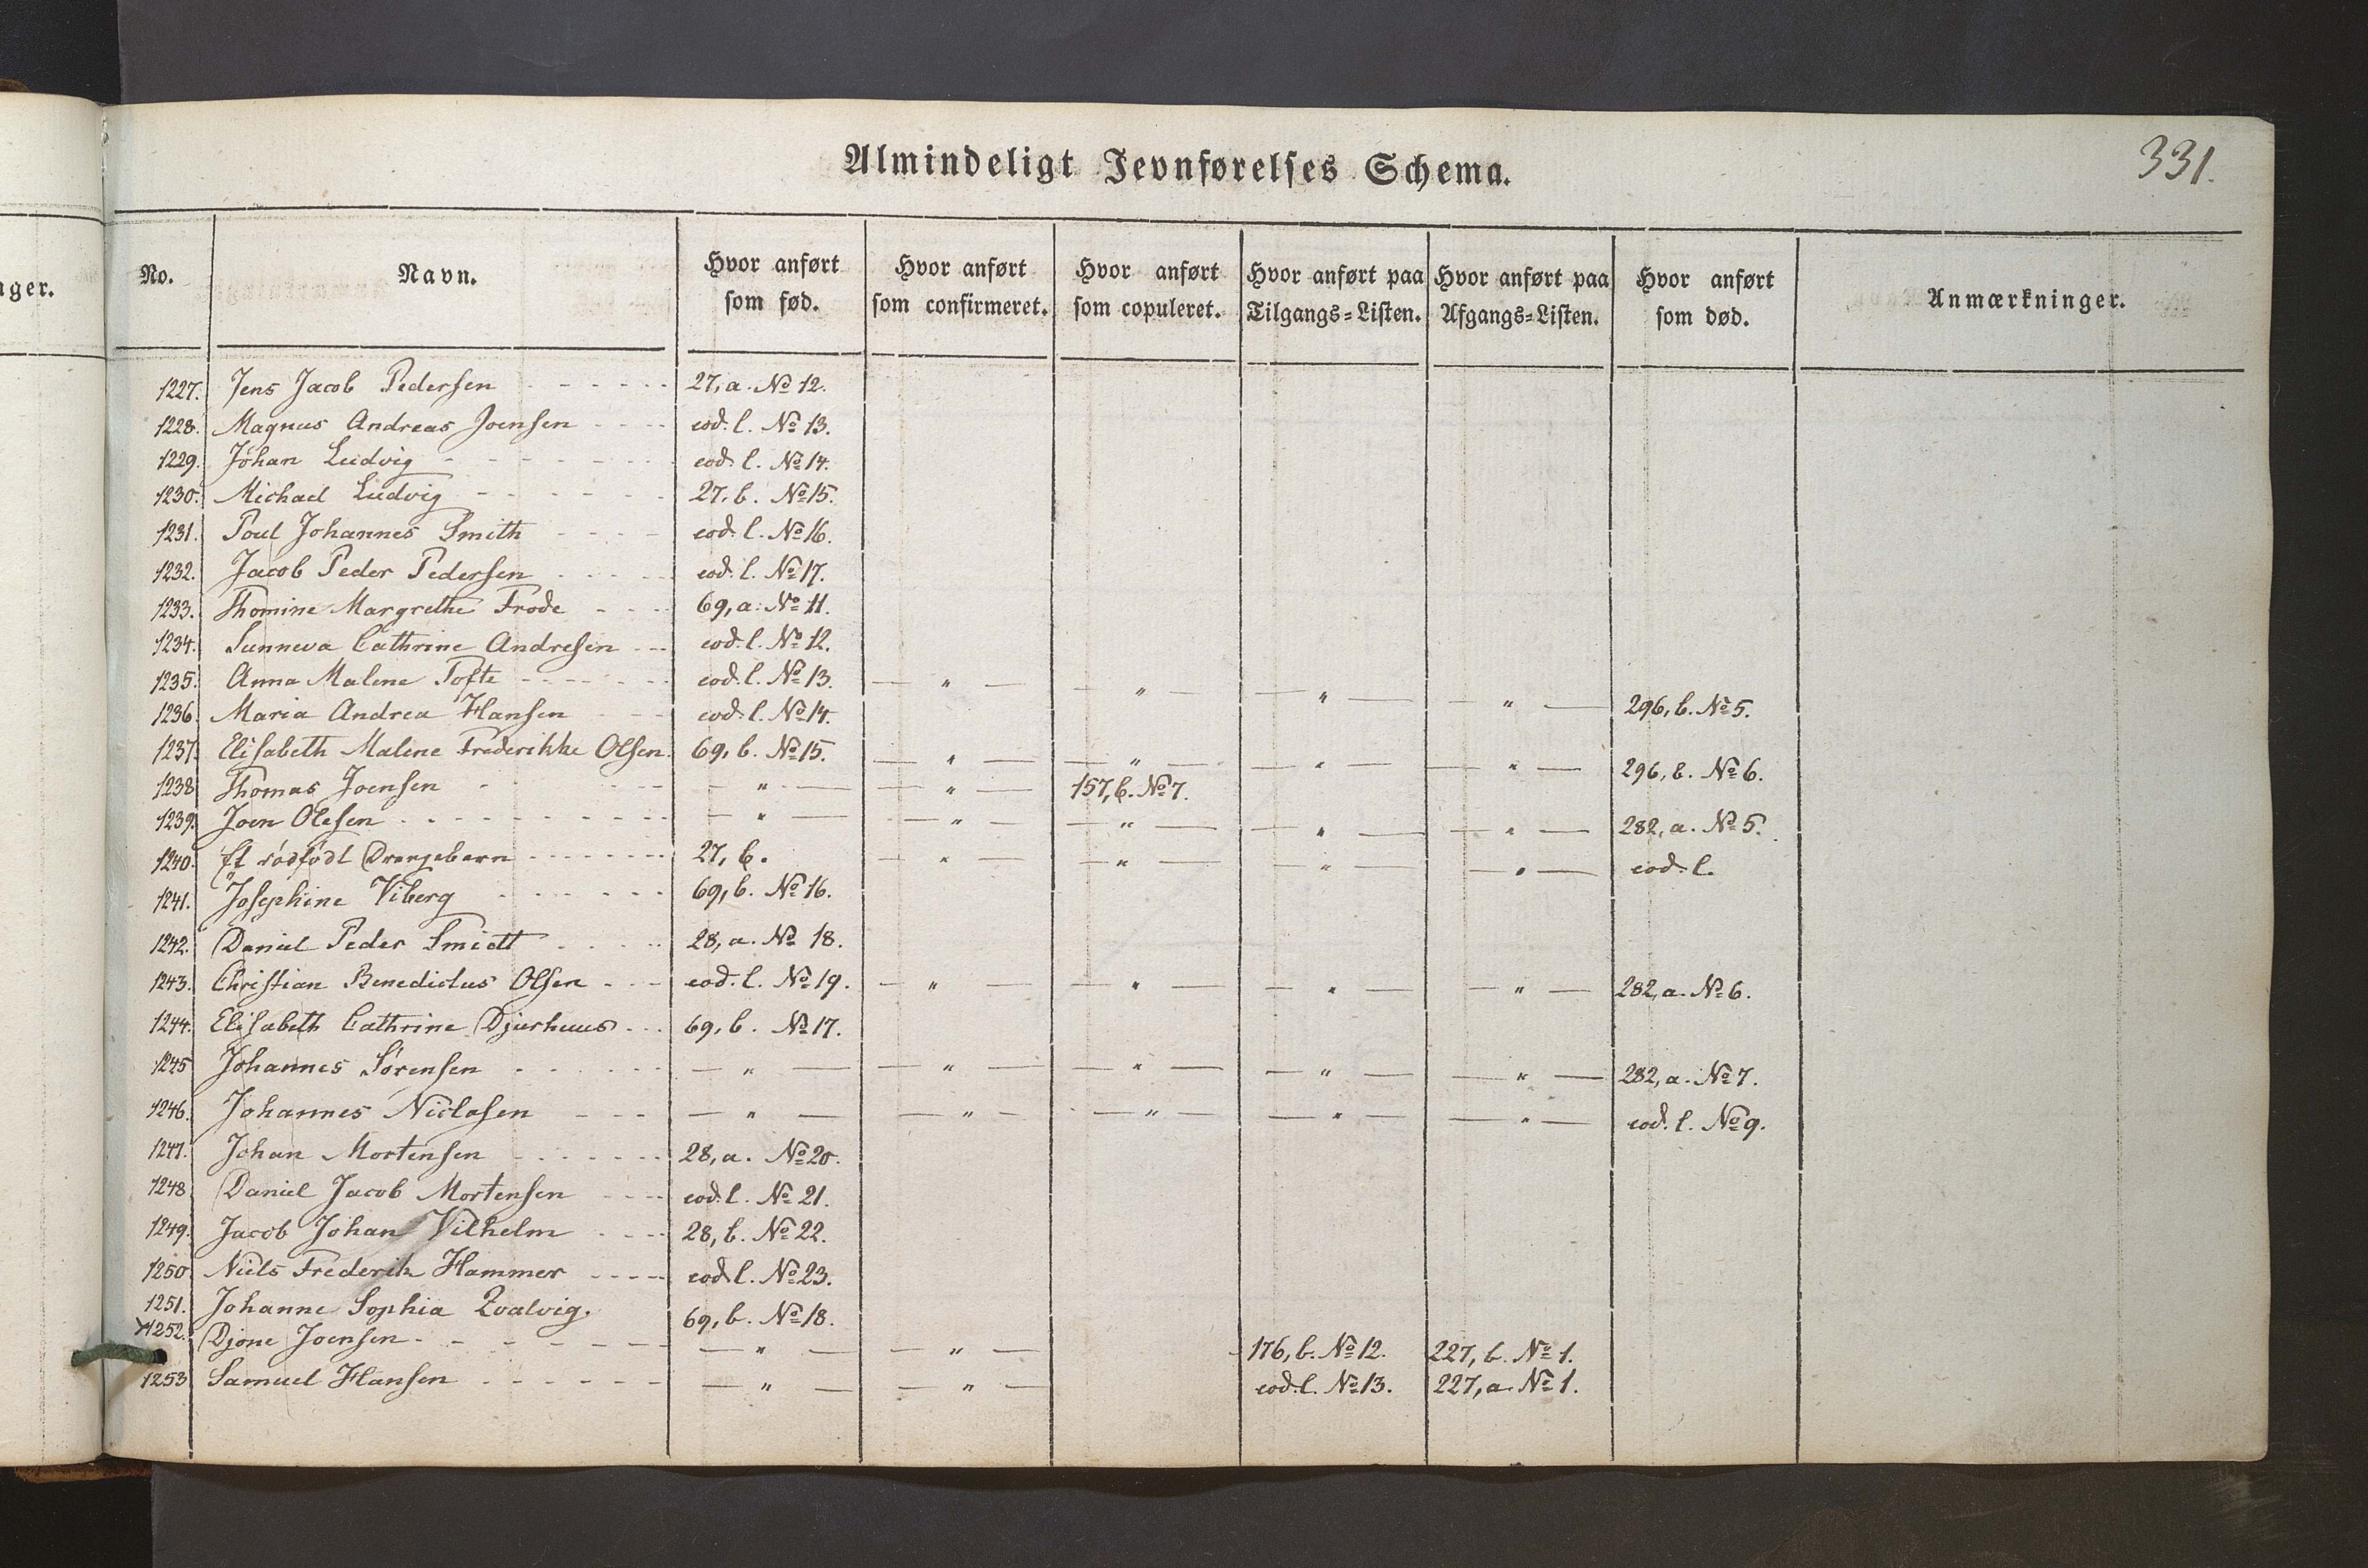 331.
Almindeligt Jevnførelses Schema.
nger.
No. | Navn. | Hvor anført som fød. | Hvor anført som confirmeret. | Hvor anført som copuleret. | Hvor anført paa Tilgangs=Listen. | Hvor anført paa Afgangs=Listen. | Hvor anført som død. | Anmærkninger.
1227. Jens Jacob Pedersen - - - - - - 27, a. No 12.
1228. Magnus Andreas Joensen - - - - eod. l. No 13.
1229. Johan Ludvig - - - - - - - eod. l. No 14.
1230. Michael Ludvig - - - - - - 27, b. No 15.
1231. Poul Johannes Smith - - - - eod. l. No 16.
1232. Jacob Peder Pedersen - - - - eod. l. No 17.
1233. Thomine Margrethe Trode - - - 69, a. No 11.
1234. Sunneva Cathrine Andresen - - eod. l. No 12.
1235. Anna Malene Tofte - - - - - - eod. l. No 13. — " — — " — — " — — " — 296, b. No 5.
1236. Maria Andrea Hansen - - - eod. l. No 14.
1237. Elisabeth Malene Frederikke Olsen. 69, b. No 15. — " — — " — — " — — " — 296, b. No 6.
1238. Thomas Joensen - - - - — " — — " — 157, b. No 7.
1239. Joen Olesen - - - - - - - - — " — — " — — " — — " — — " — 282, a. No 5.
1240. Et dødfødt Drengebarn - - - - - - - 27, b. — " — — " — — " — — " — eod. l.
1241. Josephine Viberg - - - - - - 69, b. No 16.
1242. Daniel Peder Smidt - - - - - 28, a. No 18.
1243. Christian Benedictus Olsen - - - eod. l. No 19. — " — — " — — " — — " — 282, a. No 6.
1244. Elisabeth Cathrine Djurhuus - - - 69, b. No 17.
1245 Johannes Sørensen - - - - - - — " — — " — — " — — " — — " — 282, a. No 7.
1246. Johannes Niclasen - - - — " — — " — — " — — " — — " — eod. l. No 9.
1247. Johan Mortensen - - - - - - - 28, a. No 20.
1248 Daniel Jacob Mortensen - - - - eod. l. No 21.
1249. Jacob Johan Vilhelm - - - - 28, b. No 22.
1250 Niels Frederik Hammer - - - - - eod. l. No 23.
1251. Johanne Sophia Zvalvig. 69, b. No 18.
1252. Djone Joensen - - - - - - - — " — — " — 176, b. No 12. 227, b. No 1.
1253 Samuel Hansen - - - - - - — " — — " — eod. l. No 13. 227, a. No 1.